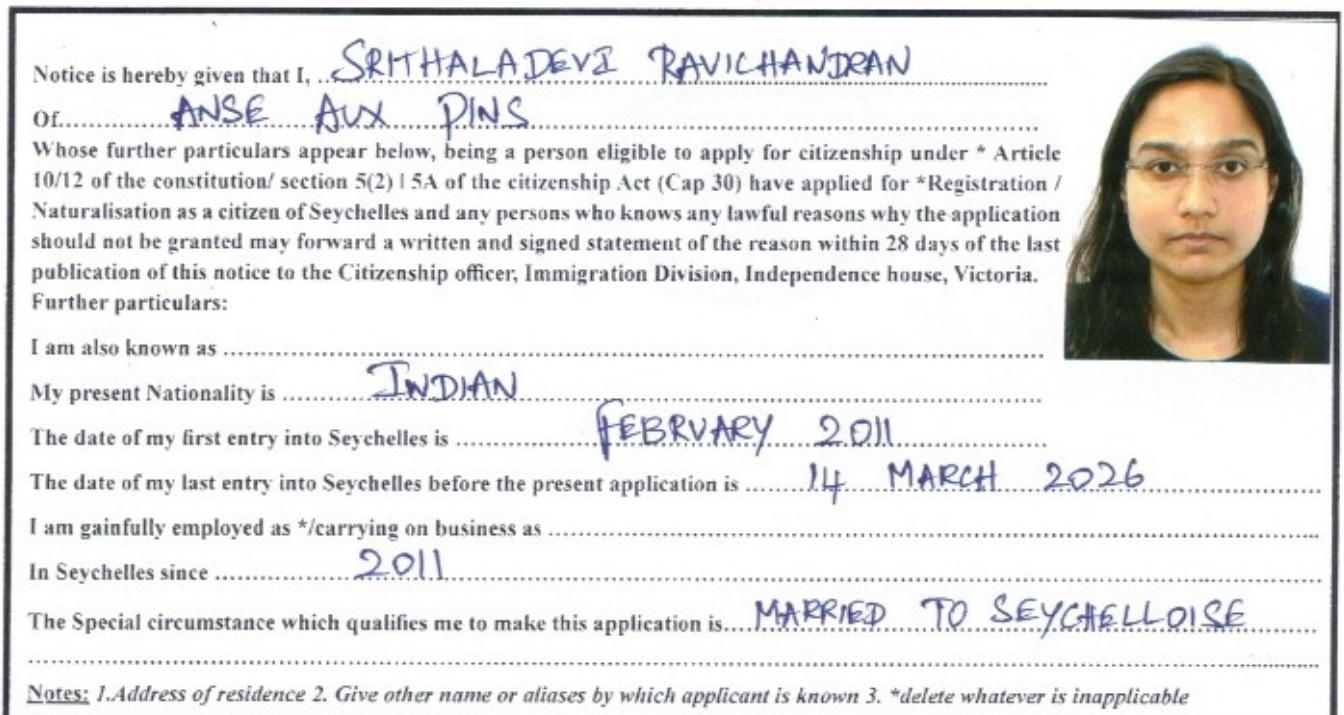 Notice is hereby given that I, SRITHALADEVI RAVICHANDRAN
Of ANSE AUX PINS
Whose further particulars appear below, being a person eligible to apply for citizenship under * Article
10/12 of the constitution/ section 5(2) | 5A of the citizenship Act (Cap 30) have applied for *Registration /
Naturalisation as a citizen of Seychelles and any persons who knows any lawful reasons why the application
should not be granted may forward a written and signed statement of the reason within 28 days of the last
publication of this notice to the Citizenship officer, Immigration Division, Independence house, Victoria.
Further particulars:
I am also known as
My present Nationality is INDIAN
The date of my first entry into Seychelles is FEBRUARY 2011
The date of my last entry into Seychelles before the present application is 14 MARCH 2026
I am gainfully employed as */carrying on business as
In Seychelles since 2011
The Special circumstance which qualifies me to make this application is MARRIED TO SEYCHELLOISE
Notes: 1.Address of residence 2. Give other name or aliases by which applicant is known 3. *delete whatever is inapplicable